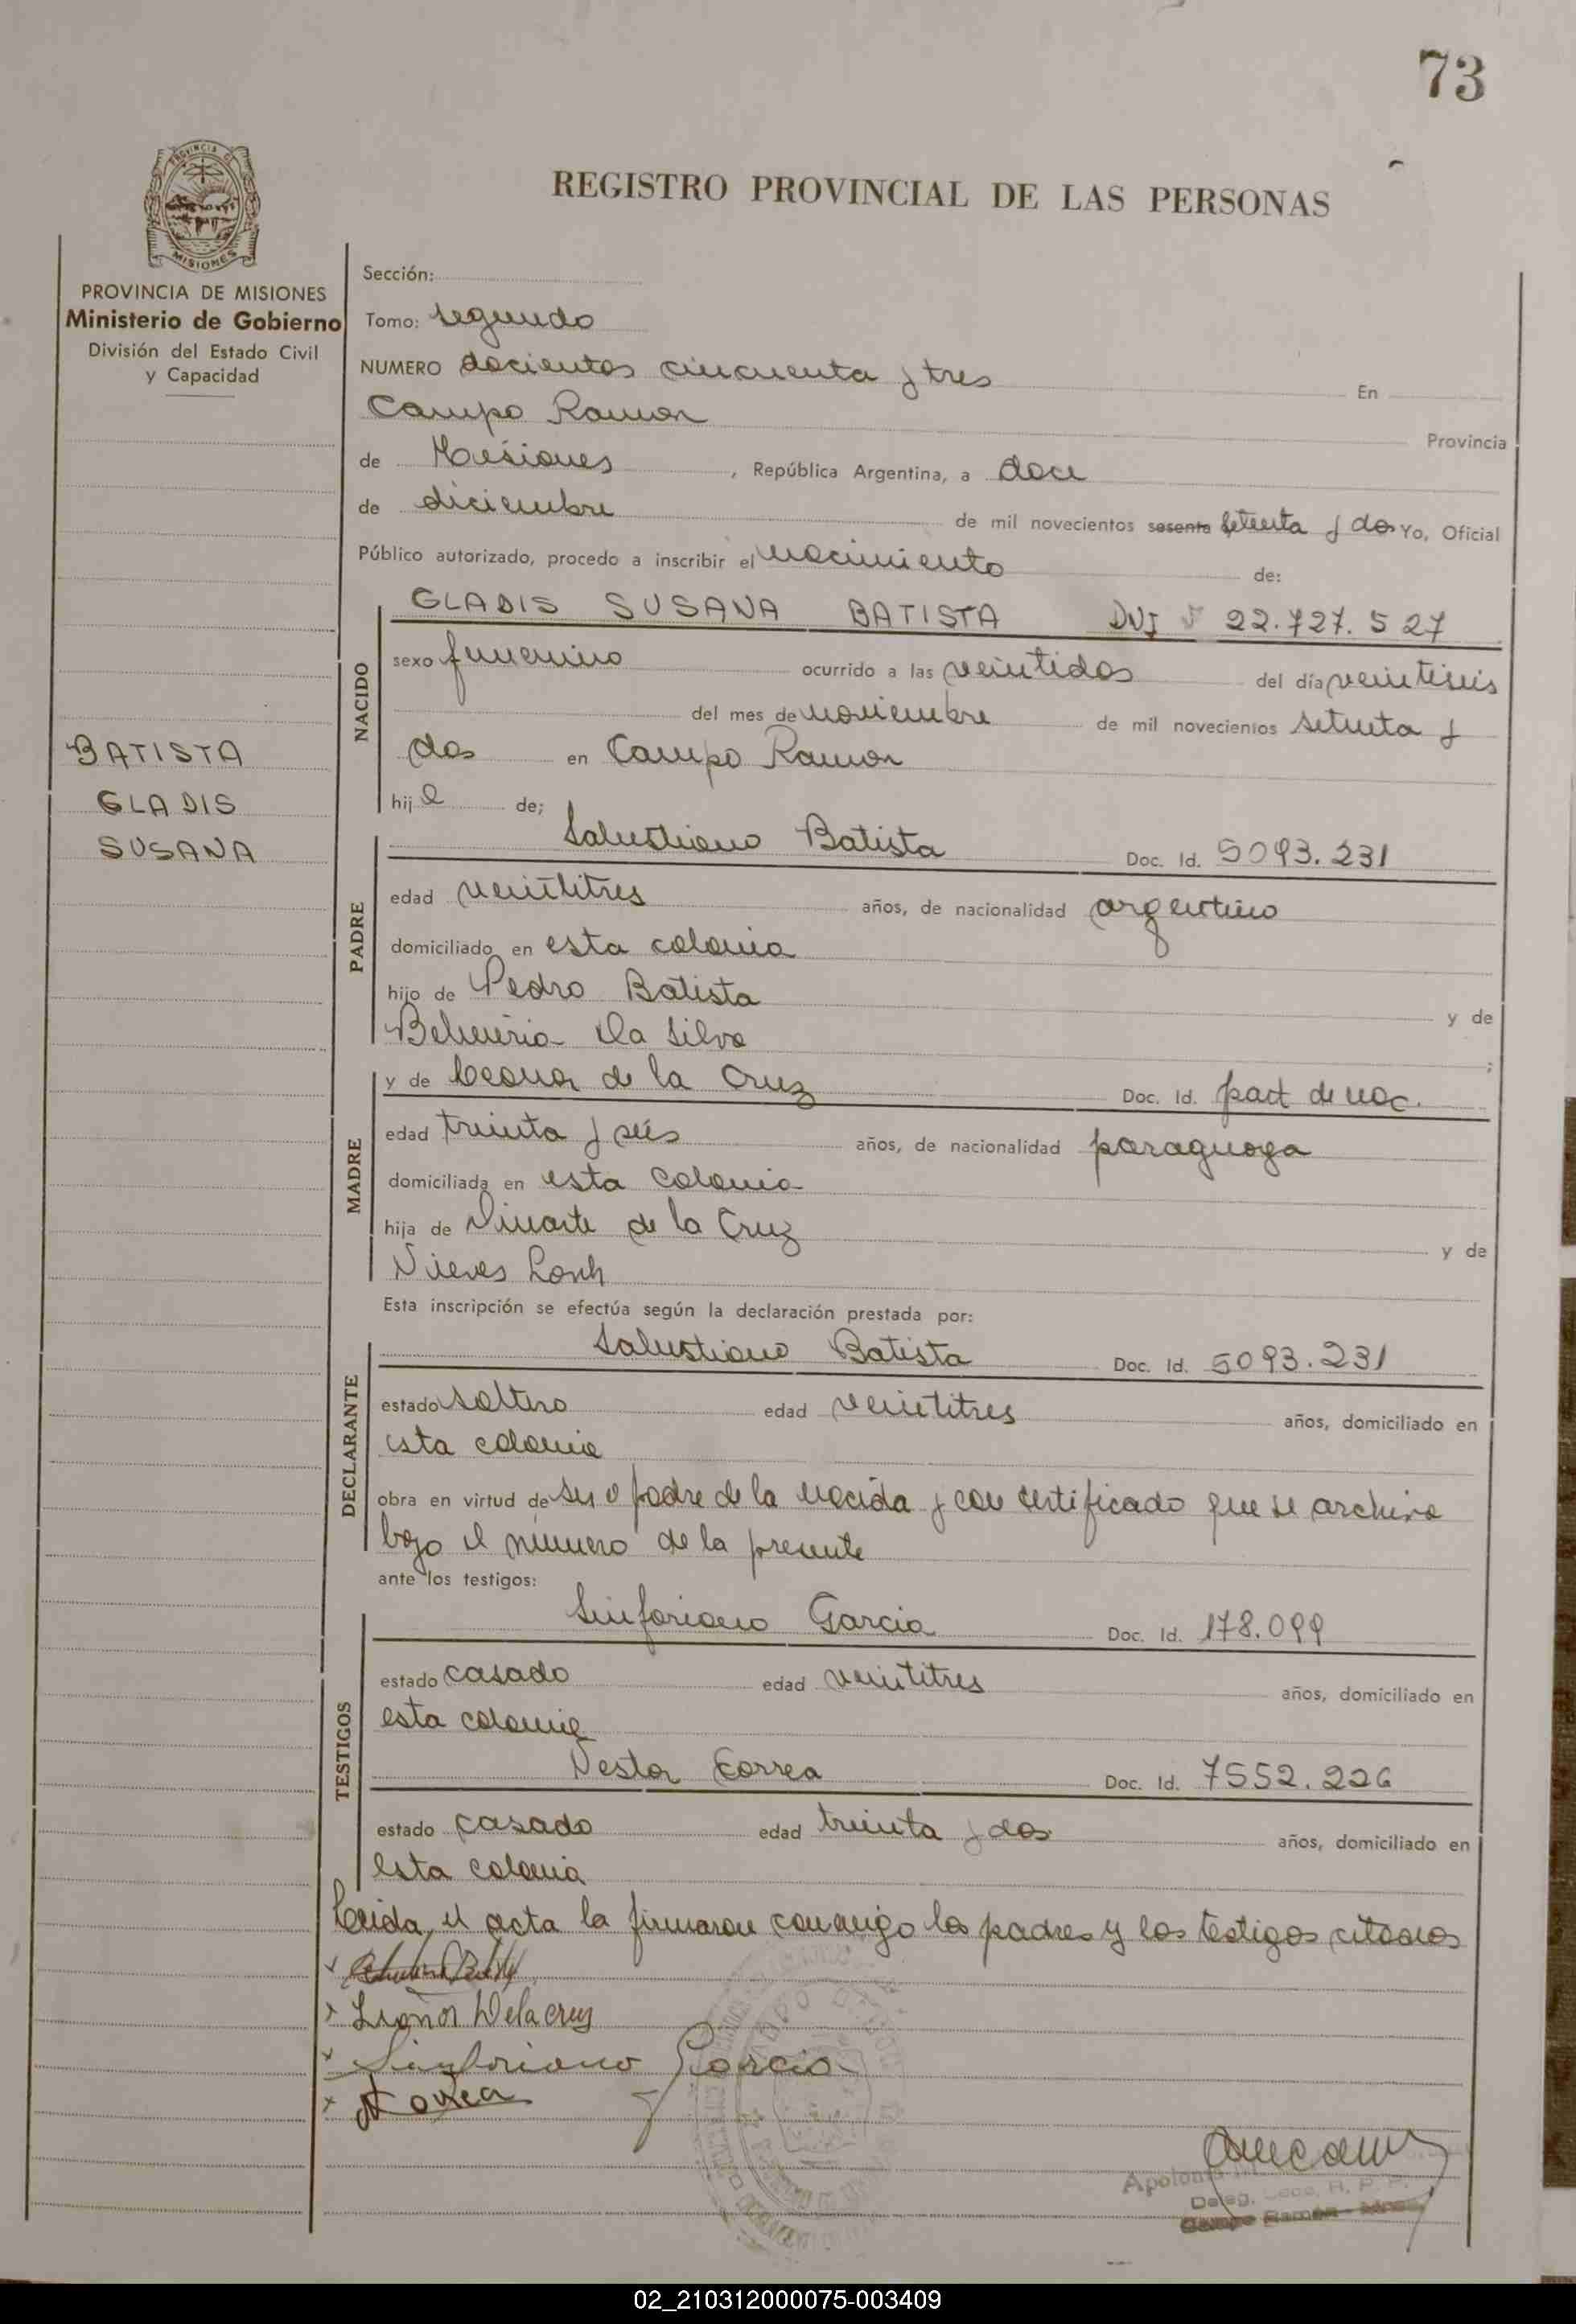 73
PROVINCIA DE
MISIONES
REGISTRO PROVINCIAL DE LAS PERSONAS
PROVINCIA DE MISIONES
Ministerio de Gobierno
División del Estado Civil
y Capacidad
BATISTA
GLADIS
SUSANA
Sección:
Tomo: segundo
NUMERO docientos cincuenta y tres En
Campo Ramon Provincia
de Misiones, República Argentina, a doce
de diciembre de mil novecientos sesenta setenta y dos Yo, Oficial
Público autorizado, procedo a inscribir el nacimiento de:
NACIDO
GLADIS SUSANA BATISTA DNI Nº 22.727.527
sexo femenino ocurrido a las veintidos del día veintiseis
del mes de noviembre de mil novecientos setenta y
dos en Campo Ramon
hija de;
PADRE
Salustiano Batista Doc. Id. 5093.231
edad veintitres años, de nacionalidad argentino
domiciliado en esta colonia
hijo de Pedro Batista y de
Belmiria Da Silva ;
MADRE
y de Leonor de la Cruz Doc. Id. part de nac.
edad treinta y seis años, de nacionalidad paraguaya
domiciliada en esta colonia
hija de Dinarte de la Cruz y de
Nieves
Esta inscripción se efectúa según la declaración prestada por:
DECLARANTE
Salustiano Batista Doc. Id. 5093.231
estado soltero edad veintitres años, domiciliado en
esta colonia
obra en virtud de ser padre de la nacida y con certificado que se archiva
bajo el número de la presente
ante los testigos:
TESTIGOS
Sinforiano Garcia Doc. Id. 178.099
estado casado edad veintitres años, domiciliado en
esta colonia
Nestor Correa Doc. Id. 7552.226
estado casado edad treinta y dos años, domiciliado en
esta colonia
Leida el acta la firmaron conmigo los padres y los testigos citados
x
x Leonor Delacruz
x Sinforiano Garcia
x
Deleg. R. P. P.
Campo Ramón - Mnes.
02_210312000075-003409